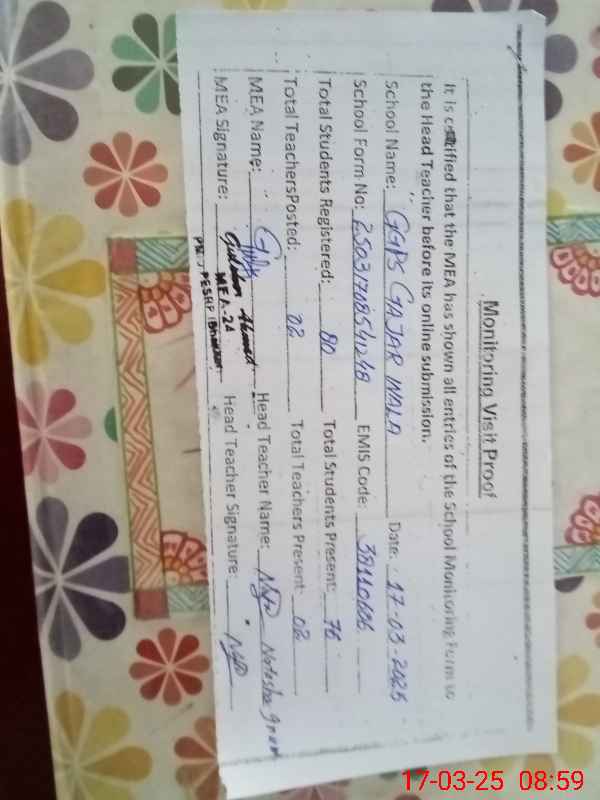 Monitoring Visit Proof
It is certified that the MEA has shown all entries of the School Monitoring Form to
the Head Teacher before its online submission.
School Name: GGPS GAJAR WALA Date: 17-03-2025
School Form No: EMIS Code: 38110686
Total Students Registered: 80 Total Students Present: 76
Total Teachers Posted: 02 Total Teachers Present: 02
MEA Name: Head Teacher Name: Natasha
MEA Signature: Ahmed Head Teacher Signature:
MEA-24
17-03-25 08:59